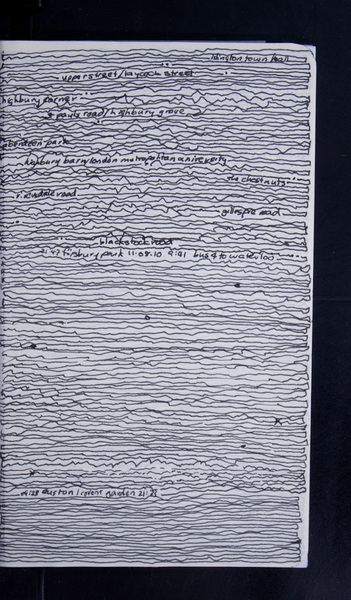 islington town hall
upper street/laycock street
highbury corner
st pauls road/highbury grove
aberdeen park
highbury barn/london metropolitan university
the chestnuts
riversdale road
gillespie road
blackstock road
finsbury park 11.08.10 9:21 bus 4 to waterloo
euston/covent garden